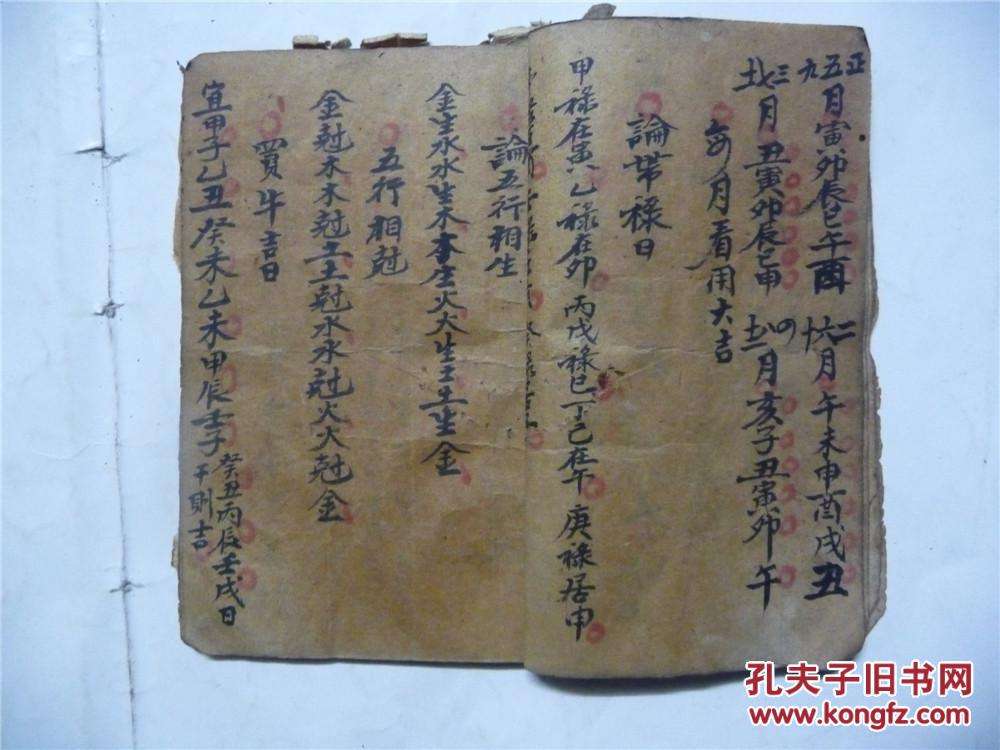 正五九月寅卯辰巳午酉 二六十月午未申酉戌丑
三七十一月丑寅卯辰巳申 四八十二月亥子丑寅卯午
每月看用大吉
論帶祿日
甲祿在寅 乙祿在卯 丙戊祿巳 丁己在午 庚祿居申
論五行相生
金生水水生木木生火火生土土生金
五行相尅
金尅木木尅土土尅水水尅火火尅金
買牛吉日
宜甲子乙丑癸未乙未甲辰壬子癸丑丙辰壬戌日
干則吉
孔夫子旧书网
www.kongfz.com